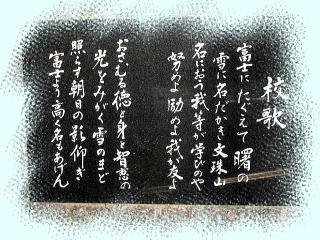 校歌
富士にたぐえて曙の
雪に名だかき文珠山
名におう我等が学びのや
努めよ励めよ我が友よ
おさむる徳と身と智恵の
光をみがく雪のまど
照らす朝日の影仰ぎ
富士より高く名もあげん